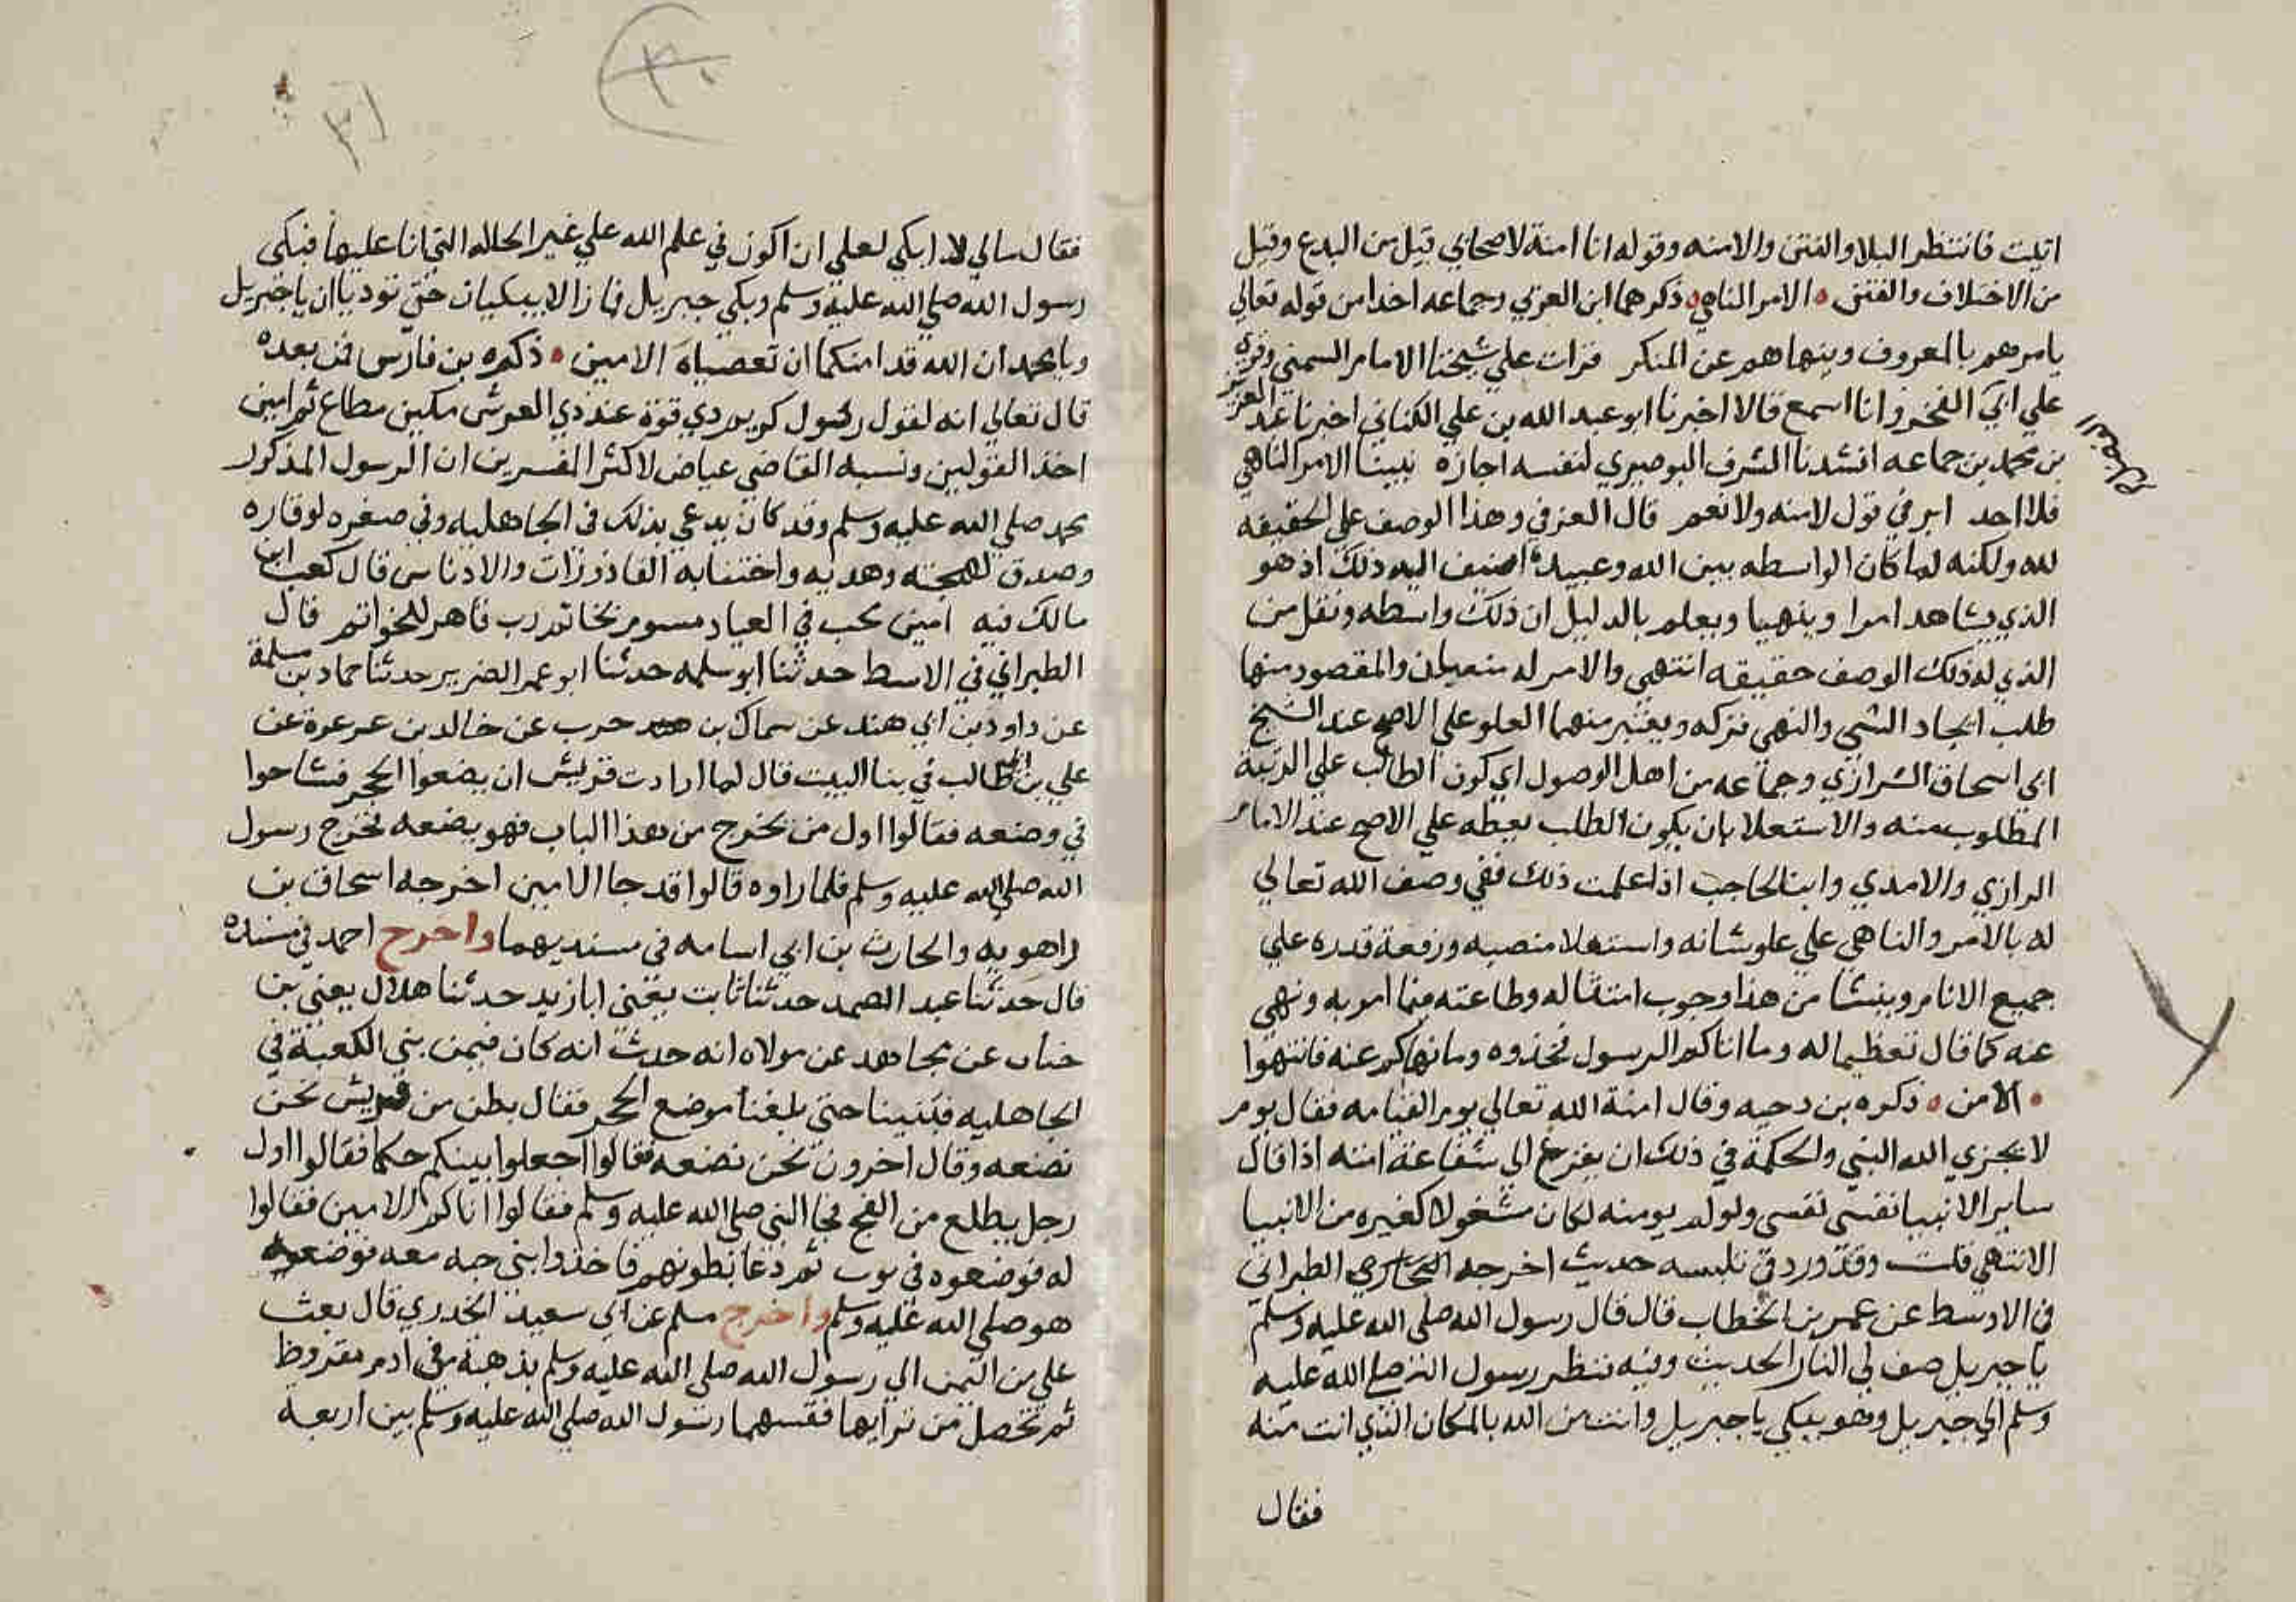 اتيت فانتظر البلا والفتن والامنه وقوله انا امنة لاصحابي قيل من البدع وقيل
من الاختلاف والفتن ه الامر الناهي ه ذكرهما ابن العزفي وجماعه اخدا من قوله تعالي
يامرهم بالمعروف وينهاهم عن المنكر قرات علي شيخنا الامام الشمني وقري
علي ابي الفخر وانا اسمع قالا اخبرنا ابو عبد الله بن علي الكناني اخبرنا عبد العزيز
بن محمد بن جماعه انشدنا الشرف البوصيري لنفسه اجازه نبينا الامر الناهي
فلا احد ابر في قول لا منه ولا نعم قال العزفي وهذا الوصف علي الحقيقه
لله ولكنه لما كان الواسطه بين الله وعبيده اضيف اليه ذلك اذ هو
الذي يشاهد امرا وينهيا ويعلم بالدليل ان ذلك واسطه ونقل من
الذي له ذلك الوصف حقيقه انتهي والامر له والمقصود منها
طلب ايجاد الشي والنهي تركه ويعتبر منهما العلو علي الاصح عند الشيخ
ابي اسحاق الشرازي وجماعه من اهل الوصول اي كون الطالب علي الرتبة
المطلوب منه والاستعلا بان يكون الطلب بعظه علي الاصح عند الامام
الرازي والامدي وابن الحاجب اذا علمت ذلك ففي وصف الله تعالي
له بالامر والناهي علي علو شانه واستعلا منصبه ورفعة قدره علي
جميع الانام وينشا من هذا وجوب امتثاله وطاعته فيما امر به ونهي
عنه كما قال تعظيما له وما اتاكم الرسول فخذوه وما نهاكم عنه فانتهوا
ه الامن ه ذكره بن دحيه وقال امنة الله تعالي يوم القيامه فقال يوم
لا يجزي الله النبي والحكمة في ذلك ان يفزع الي شفاعة امته اذا قال
ساير الانبيا نفسي نفسي ولو لم يومنه لكان مشغولا كغيره من الانبيا
الانتهي قلت وقد ورد في حديث اخرجه الطبراني
في الاوسط عن عمر بن الخطاب قال قال رسول الله صلي الله عليه وسلم
يا جبريل صف لي النار الحديث وفيه فنظر رسول الله صلي الله عليه
وسلم الي جبريل وهو يبكي يا جبريل وانت من الله بالمكان الذي انت منه
فقال
فقال مالي لا ابكي لعلي ان اكون في علم الله علي غير الحاله التي انا عليها فبكي
رسول الله صلي الله عليه وسلم وبكي جبريل فما زالا يبكيان حتي نوديا ان يا جبريل
ويا محمد ان الله قد امنكما ان تعصياه الامين ه ذكره بن فارس فمن بعده
قال تعالي انه لقول رسول كريم ذي قوة عند ذي العرش مكين مطاع ثم امين
احد القولين ونسبه القاضي عياض لاكثر المفسرين ان الرسول المذكور
محمد صلي الله عليه وسلم وقد كان يدعي بذلك في الجاهليه وفي صغره لوقاره
وصدق لهجته وهديه واجتنابه القاذورات والادناس قال كعب ابن
مالك فيه امين محب في العباد مسوم بخاتم رب قاهر للخواتم قال
الطبراني في الاسط حدثنا ابو سلمه حدثنا ابو عمر الضرير حدثنا حماد بن سلمة
عن داود بن ابي هند عن سماك بن حرب عن خالد بن عرعرة عن
علي بن ابي طالب في بنا البيت قال لما ارادت قريش ان يضعوا الحجر فتشاحوا
في وضعه فقالوا اول من يخرج من هذا الباب فهو يضعه فخرج رسول
الله صلي الله عليه وسلم فلما راوه قالوا قد جا الامين اخرجه اسحاق بن
راهويه والحارث بن ابي اسامه في مسنديهما واخرج احمد في مسنده
قال حدثنا عبد الصمد حدثنا ثابت يعني ابا زيد حدثنا هلال يعني بن
خباب عن مجاهد عن مولاه انه حدثه انه كان فيمن بني الكعبة في
الجاهليه فبنينا حتي بلغنا موضع الحجر فقال بطن من قريش نحن
نضعه وقال اخرون نحن نضعه فقالوا اجعلوا بينكم حكما فقالوا اول
رجل يطلع من الفج فجا النبي صلي الله عليه وسلم فقالوا اتاكم الامين فقالوا
له فوضعوه في ثوب ثم دعا بطونهم فاخذوا بنواحيه معه فوضعه
هو صلي الله عليه وسلم واخرج مسلم عن ابي سعيد الخدري قال بعث
علي من اليمن الي رسول الله صلي الله عليه وسلم بذهبة في ادم مقروظ
ثم تحصل من ترابها فقسمها رسول الله صلي الله عليه وسلم بين اربعة